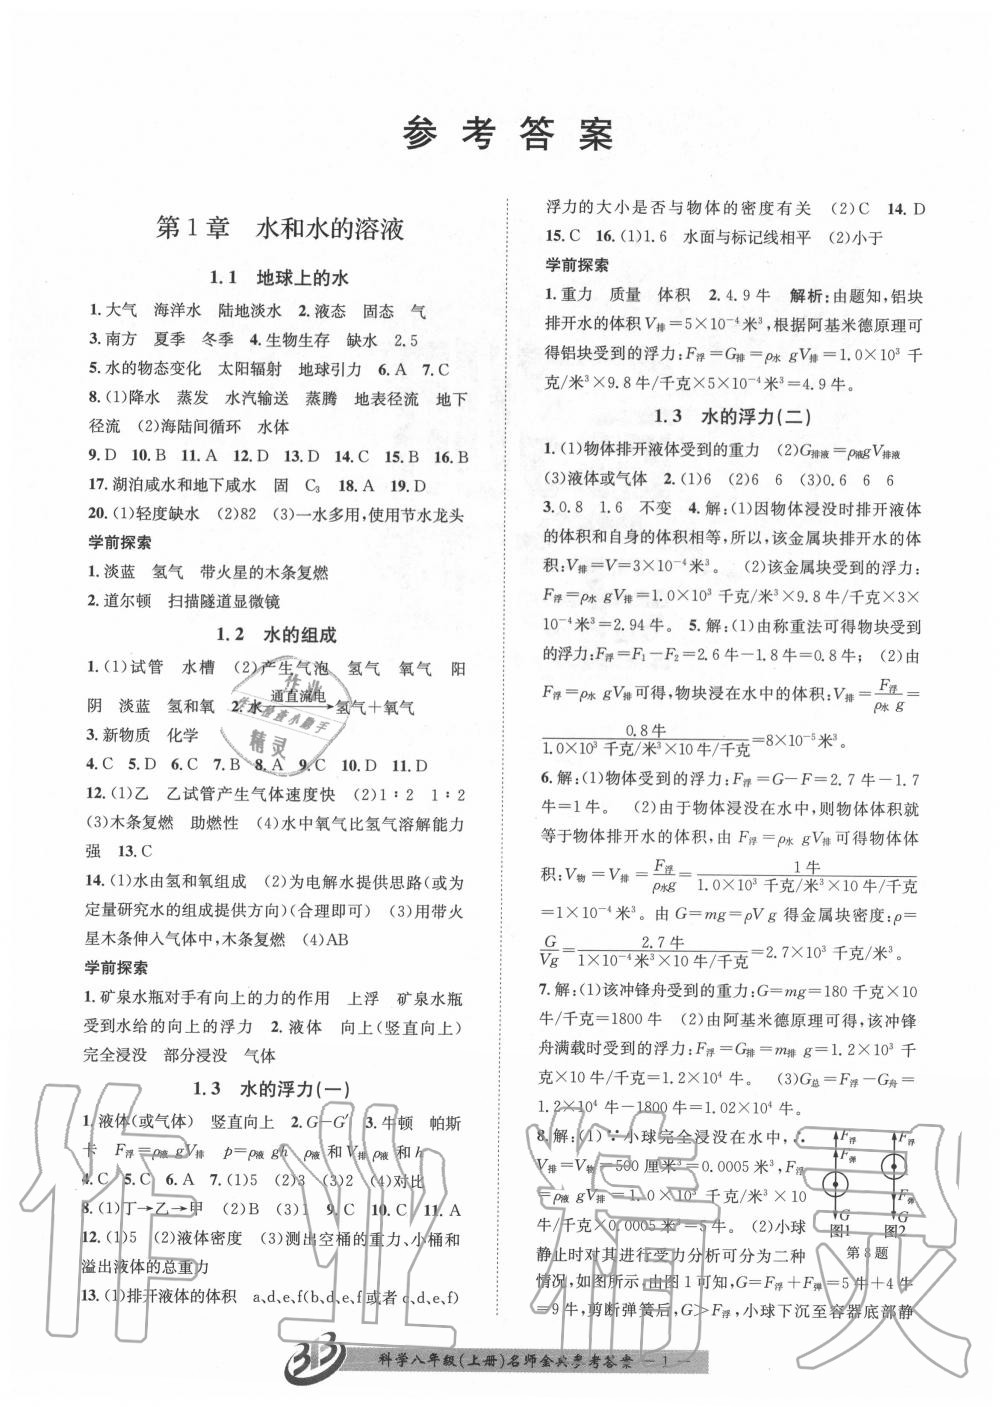 参考答案
第1章 水和水的溶液
1.1 地球上的水
1.大气 海洋水 陆地淡水 2.液态 固态 气
3.南方 夏季 冬季 4.生物生存 缺水 2.5
5.水的物态变化 太阳辐射 地球引力 6.A 7.C
8.(1)降水 蒸发 水汽输送 蒸腾 地表径流 地下
径流 (2)海陆间循环 水体
9.D 10.B 11.A 12.D 13.D 14.C 15.B 16.B
17.湖泊咸水和地下咸水 固 C₃ 18.A 19.D
20.(1)轻度缺水 (2)82 (3)一水多用,使用节水龙头
学前探索
1.淡蓝 氢气 带火星的木条复燃
2.道尔顿 扫描隧道显微镜
1.2 水的组成
1.(1)试管 水槽 (2)产生气泡 氢气 氧气 阳
阴 淡蓝 氢和氧 2.水 通直流电→ 氢气+氧气
3.新物质 化学
4.C 5.D 6.C 7.B 8.A 9.C 10.D 11.D
12.(1)乙 乙试管产生气体速度快 (2)1∶2 1∶2
(3)木条复燃 助燃性 (4)水中氧气比氢气溶解能力
强 13.C
14.(1)水由氢和氧组成 (2)为电解水提供思路(或为
定量研究水的组成提供方向)(合理即可) (3)用带火
星木条伸入气体中,木条复燃 (4)AB
学前探索
1.矿泉水瓶对手有向上的力的作用 上浮 矿泉水瓶
受到水给的向上的浮力 2.液体 向上(竖直向上)
完全浸没 部分浸没 气体
1.3 水的浮力(一)
1.液体(或气体) 竖直向上 2.G-G′ 3.牛顿 帕斯
卡 F浮=ρ液gV排 p=ρ液gh ρ液和V排 ρ液和h
4.C 5.C 6.A 7.(1)5 (2)3 (3)2 (4)对比
8.(1)丁→乙→甲 (2)B (3)1 9.C 10.C 11.A
12.(1)5 (2)液体密度 (3)测出空桶的重力、小桶和
溢出液体的总重力
13.(1)排开液体的体积 a、d、e、f(b、d、e、f或者c、d、e、f)
浮力的大小是否与物体的密度有关 (2)C 14.D
15.C 16.(1)1.6 水面与标记线相平 (2)小于
学前探索
1.重力 质量 体积 2.4.9牛 解析:由题知,铝块
排开水的体积V排=5×10⁻⁴米³,根据阿基米德原理可
得铝块受到的浮力:F浮=G排=ρ水gV排=1.0×10³千
克/米³×9.8牛/千克×5×10⁻⁴米³=4.9牛。
1.3 水的浮力(二)
1.(1)物体排开液体受到的重力 (2)G排液=ρ液gV排液
(3)液体或气体 2.(1)6 (2)6 6 (3)0.6 6 6
3.0.8 1.6 不变 4.解:(1)因物体浸没时排开液体
的体积和自身的体积相等,所以,该金属块排开水的体
积:V排=V=3×10⁻⁴米³。 (2)该金属块受到的浮力:
F浮=ρ水gV排=1.0×10³千克/米³×9.8牛/千克×3×
10⁻⁴米³=2.94牛。 5.解:(1)由称重法可得物块受到
的浮力:F浮=F₁-F₂=2.6牛-1.8牛=0.8牛; (2)由
F浮=ρ水gV排可得,物块浸在水中的体积:V排=F浮/ρ水g=
0.8牛/1.0×10³千克/米³×10牛/千克=8×10⁻⁵米³。
6.解:(1)物体受到的浮力:F浮=G-F=2.7牛-1.7
牛=1牛。 (2)由于物体浸没在水中,则物体体积就
等于物体排开水的体积,由F浮=ρ水gV排可得物体体
积:V物=V排=F浮/ρ水g=1牛/1.0×10³千克/米³×10牛/千克
=1×10⁻⁴米³。由G=mg=ρVg得金属块密度:ρ=
G/Vg=2.7牛/1×10⁻⁴米³×10牛/千克=2.7×10³千克/米³。
7.解:(1)该冲锋舟受到的重力:G=mg=180千克×10
牛/千克=1800牛 (2)由阿基米德原理可得,该冲锋
舟满载时受到的浮力:F浮=G排=m排g=1.2×10³千
克×10牛/千克=1.2×10⁴牛。 (3)G总=F浮-G舟=
1.2×10⁴牛-1800牛=1.02×10⁴牛。
8.解:(1)∵小球完全浸没在水中,∴
V排=V物=500厘米³=0.0005米³,F浮
=ρ液gV排=1.0×10³千克/米³×10
牛/千克×0.0005米³=5牛。 (2)小球
静止时对其进行受力分析可分为二种
情况,如图所示.由图1可知,G=F浮+F弹=5牛+4牛
=9牛,剪断弹簧后,G>F浮,小球下沉至容器底部静
F浮
F弹
G
图1
F浮
F弹
G
图2
第8题
科学八年级(上册)名师金典参考答案 —1—
作业
作业检查小助手
精灵
作业精灵